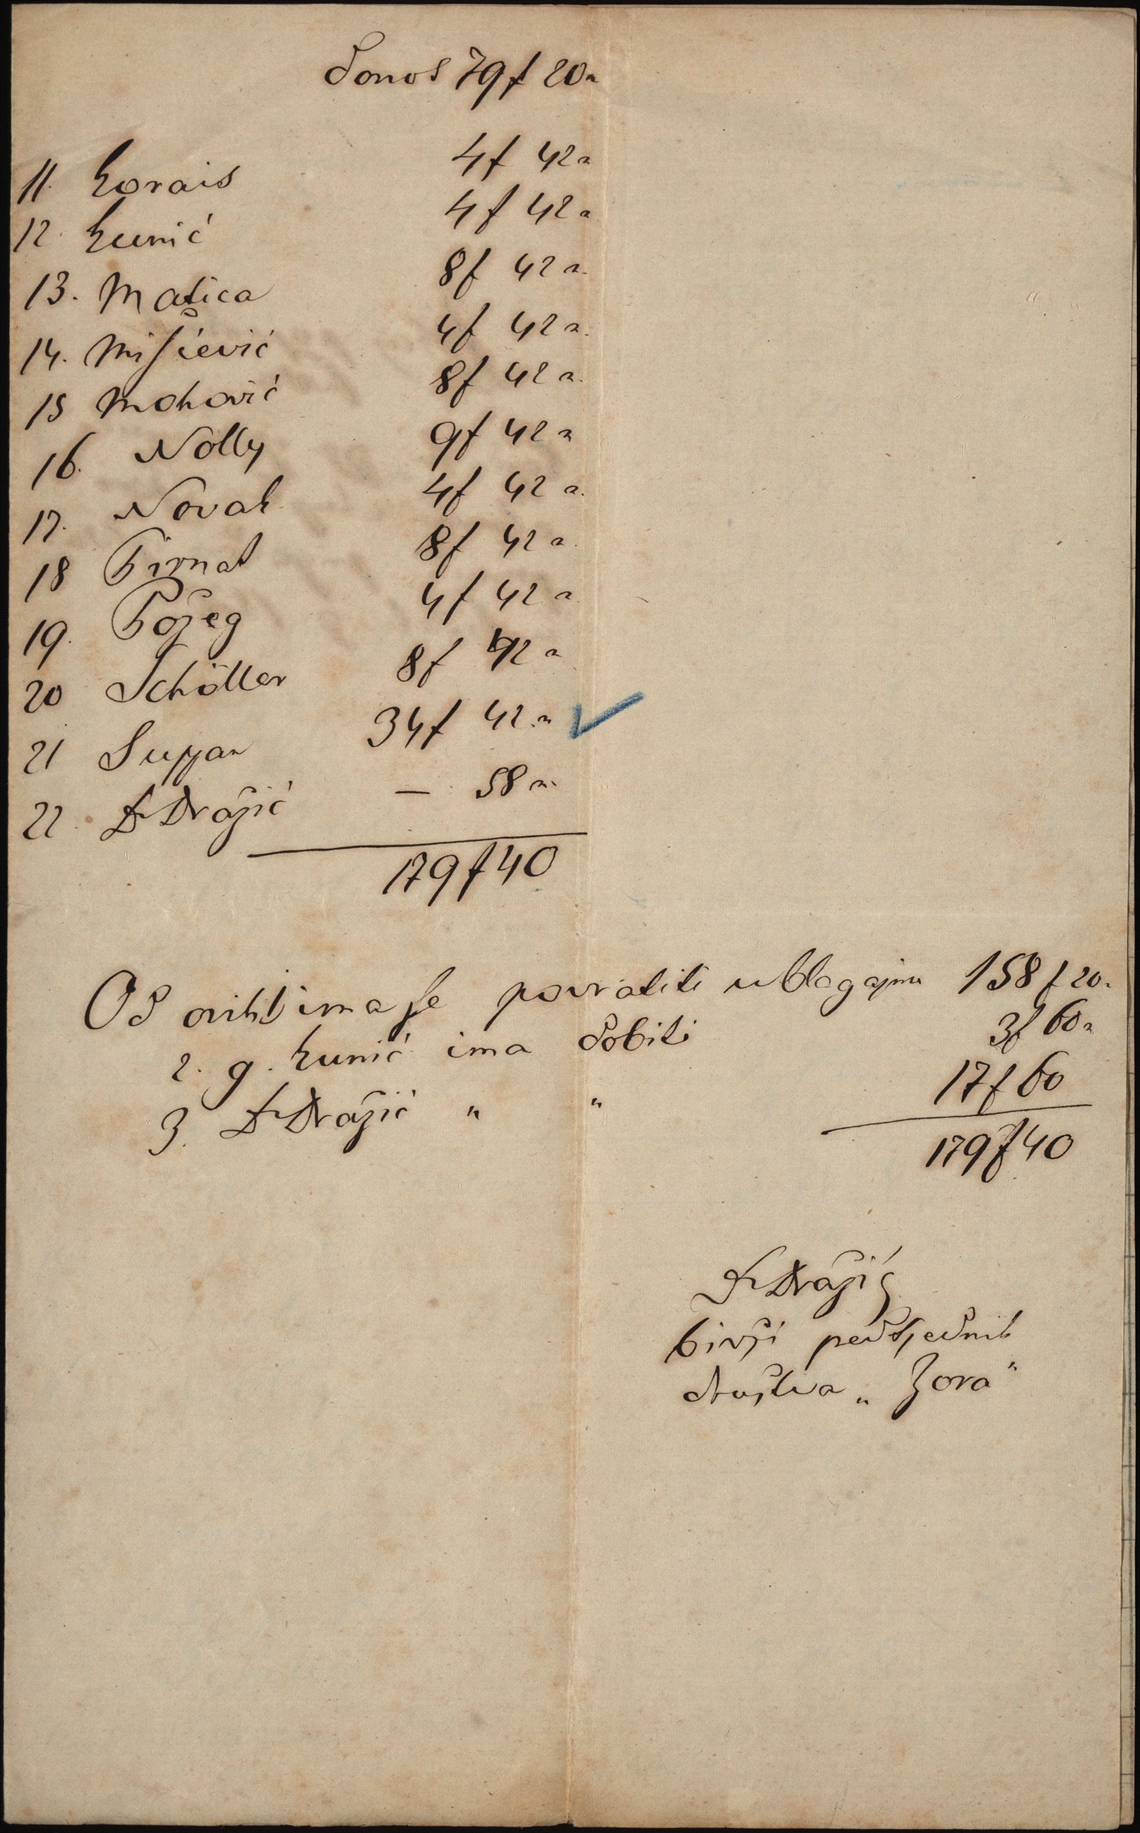 Donos 79f 20n
11. Korais 4f 42n
12. Kunić 4f 42n
13. Matica 8f 42n.
14. Mišćević 4f 42n.
15 Mohović 8f 42n.
16. Nolly 9f 42n
17. Novak 4f 42n.
18 Pirnat 8f 42n
19. Požeg 4f 42n
20 Schöller 8f 42n
21 Supan 34f 42.n
22 Dr Dražić — 58n.
179f40
Od ovih ima se povratiti u blagajnu 158f20.
2. g. Kunić ima dobiti 3f60n
3. Dr Dražić " " 17f60
179f40
Dr Dražić
bivši pedsjednik
društva „Zora"